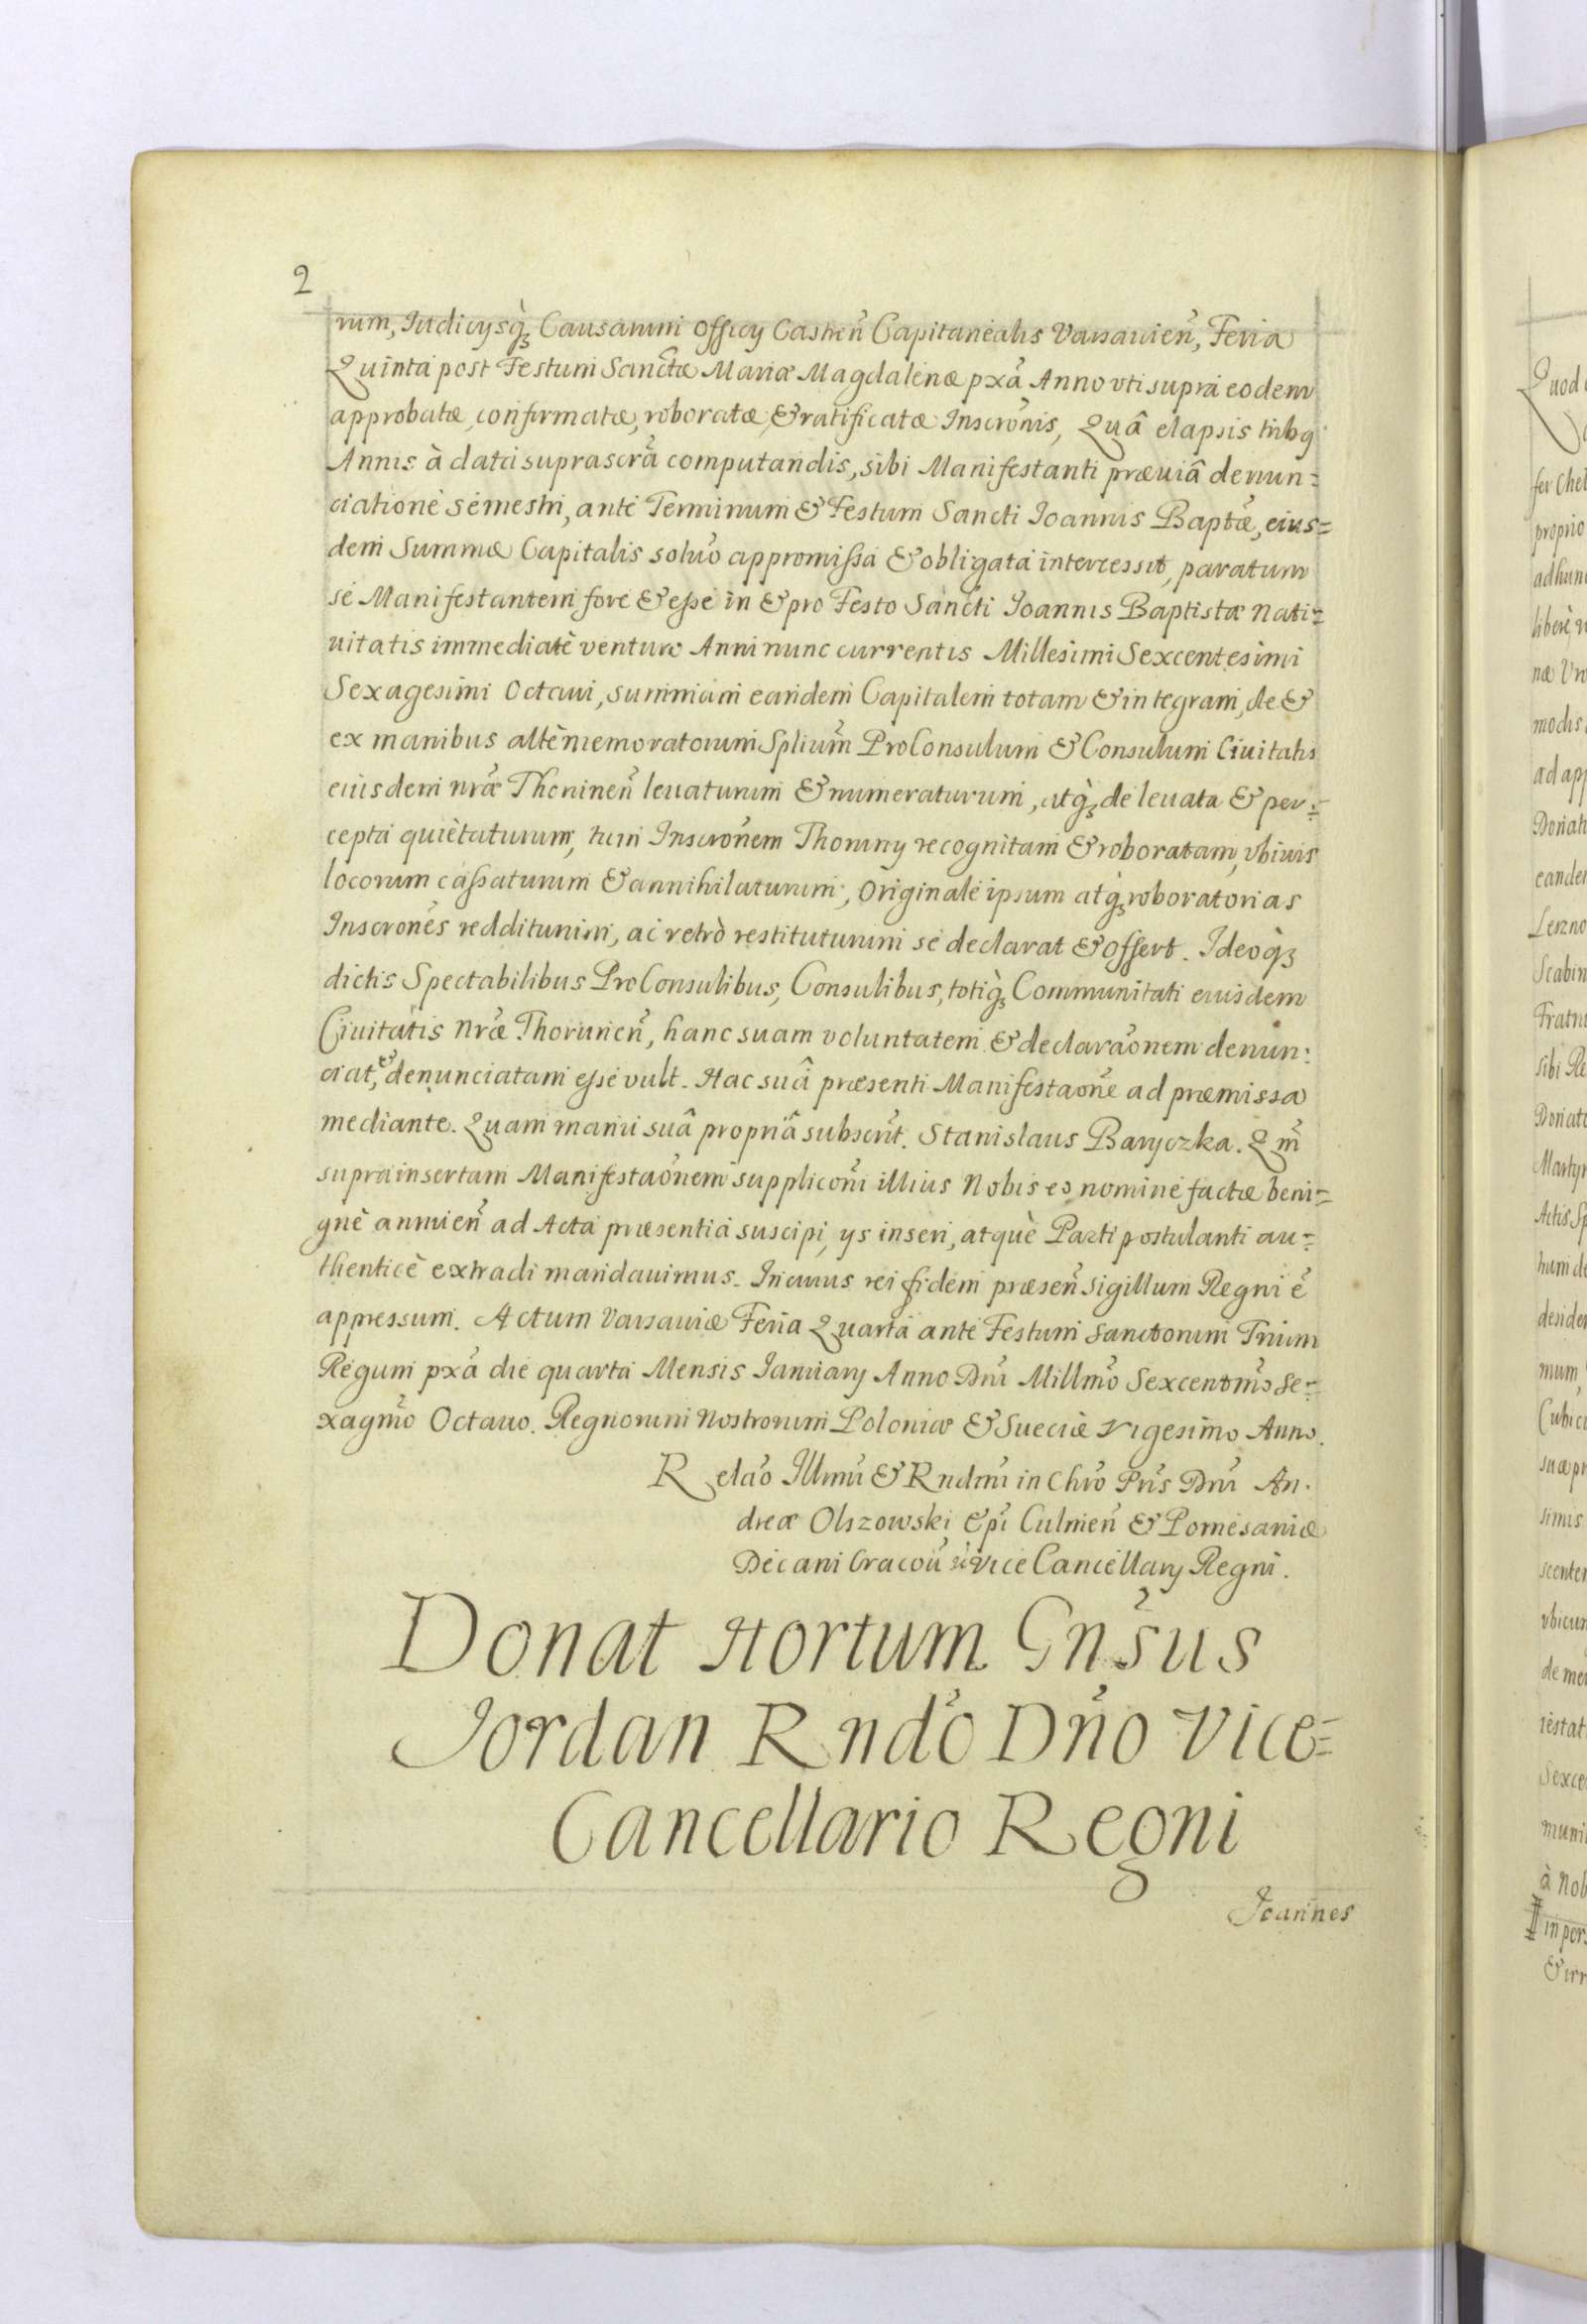 2
rum, Iudicysq́ꝫ Causarum Officy Castreñ Capitanealis Varsavieñ, Feria
Quinta post Festum Sanctæ Mariæ Magdalenæ pxã Anno vti supra eodem
approbatæ, confirmatæ, roboratæ, & ratificatæ Inscrõnis, Quâ elapsis tribq
Annis à data suprascrã computandis, sibi Manifestanti præuiâ denun=
ciatione semestri, ante Terminum & Festum Sancti Joannis Baptæ, eius=
dem Summæ Capitalis solũo appromissa & obligata intercessit, paratum
se Manifestantem fore & esse in & pro Festo Sancti Joannis Baptistæ Nati=
uitatis immediatè venturo Anni nunc currentis Millesimi Sexcentesimi
Sexagesimi Octaui, summam eandem Capitalem totam & integram, de &
ex manibus altè memoratorum Spliũm ProConsulum & Consulum Ciuitatis
eiusdem nræ Thoruneñ leuaturum & numeraturum, atq́ꝫ de leuata & per=
cepta quietaturum, tum Inscrõnem Thoruny recognitam & roboratam, vbiuis
locorum cassaturum & annihilaturum, Originale ipsum atq́ꝫ roboratorias
Inscrõnes redditurum, ac retrò restituturum se declarat & offert. Ideoq́ꝫ
dictis Spectabilibus ProConsulibus, Consulibus, totiq́ꝫ Communitati eiusdem
Ciuitatis Nræ Thoruneñ, hanc suam voluntatem & declarãonem denun:
ciat, & denunciatam esse vult. Hac suâ præsenti Manifestaõne ad præmissa
mediante. Quam manu suâ propriâ subscrit. Stanislaus Baryczka. Qm̃
suprainsertam Manifestaõnem supplicõni illius Nobis eo nomine factæ beni=
gnè annueñ ad Acta præsentia suscipi, ys inseri, atquè Parti postulanti au=
thenticè extradi mandauimus. In cuius rei fidem præseñ sigillum Regni ẽ
appressum. Actum Varsauiæ Feria Quarta ante Festum Sanctorum Trium
Regum pxã die quarta Mensis January Anno Dni Millmõ Sexcentmõ Se=
xagmõ Octauo. Regnorum Nostrorum Poloniæ & Sueciæ vigesimo Anno.
Relaõ Illmi & Rndmi in Chro Pris Dni An.
dreæ Olszowski Epi Culmeñ & Pomesaniæ
Decani Cracou Vice Cancellary Regni.
Donat Hortum Gnsus
Jordan Rndo Dño Vice=
Cancellario Regni
Joannes